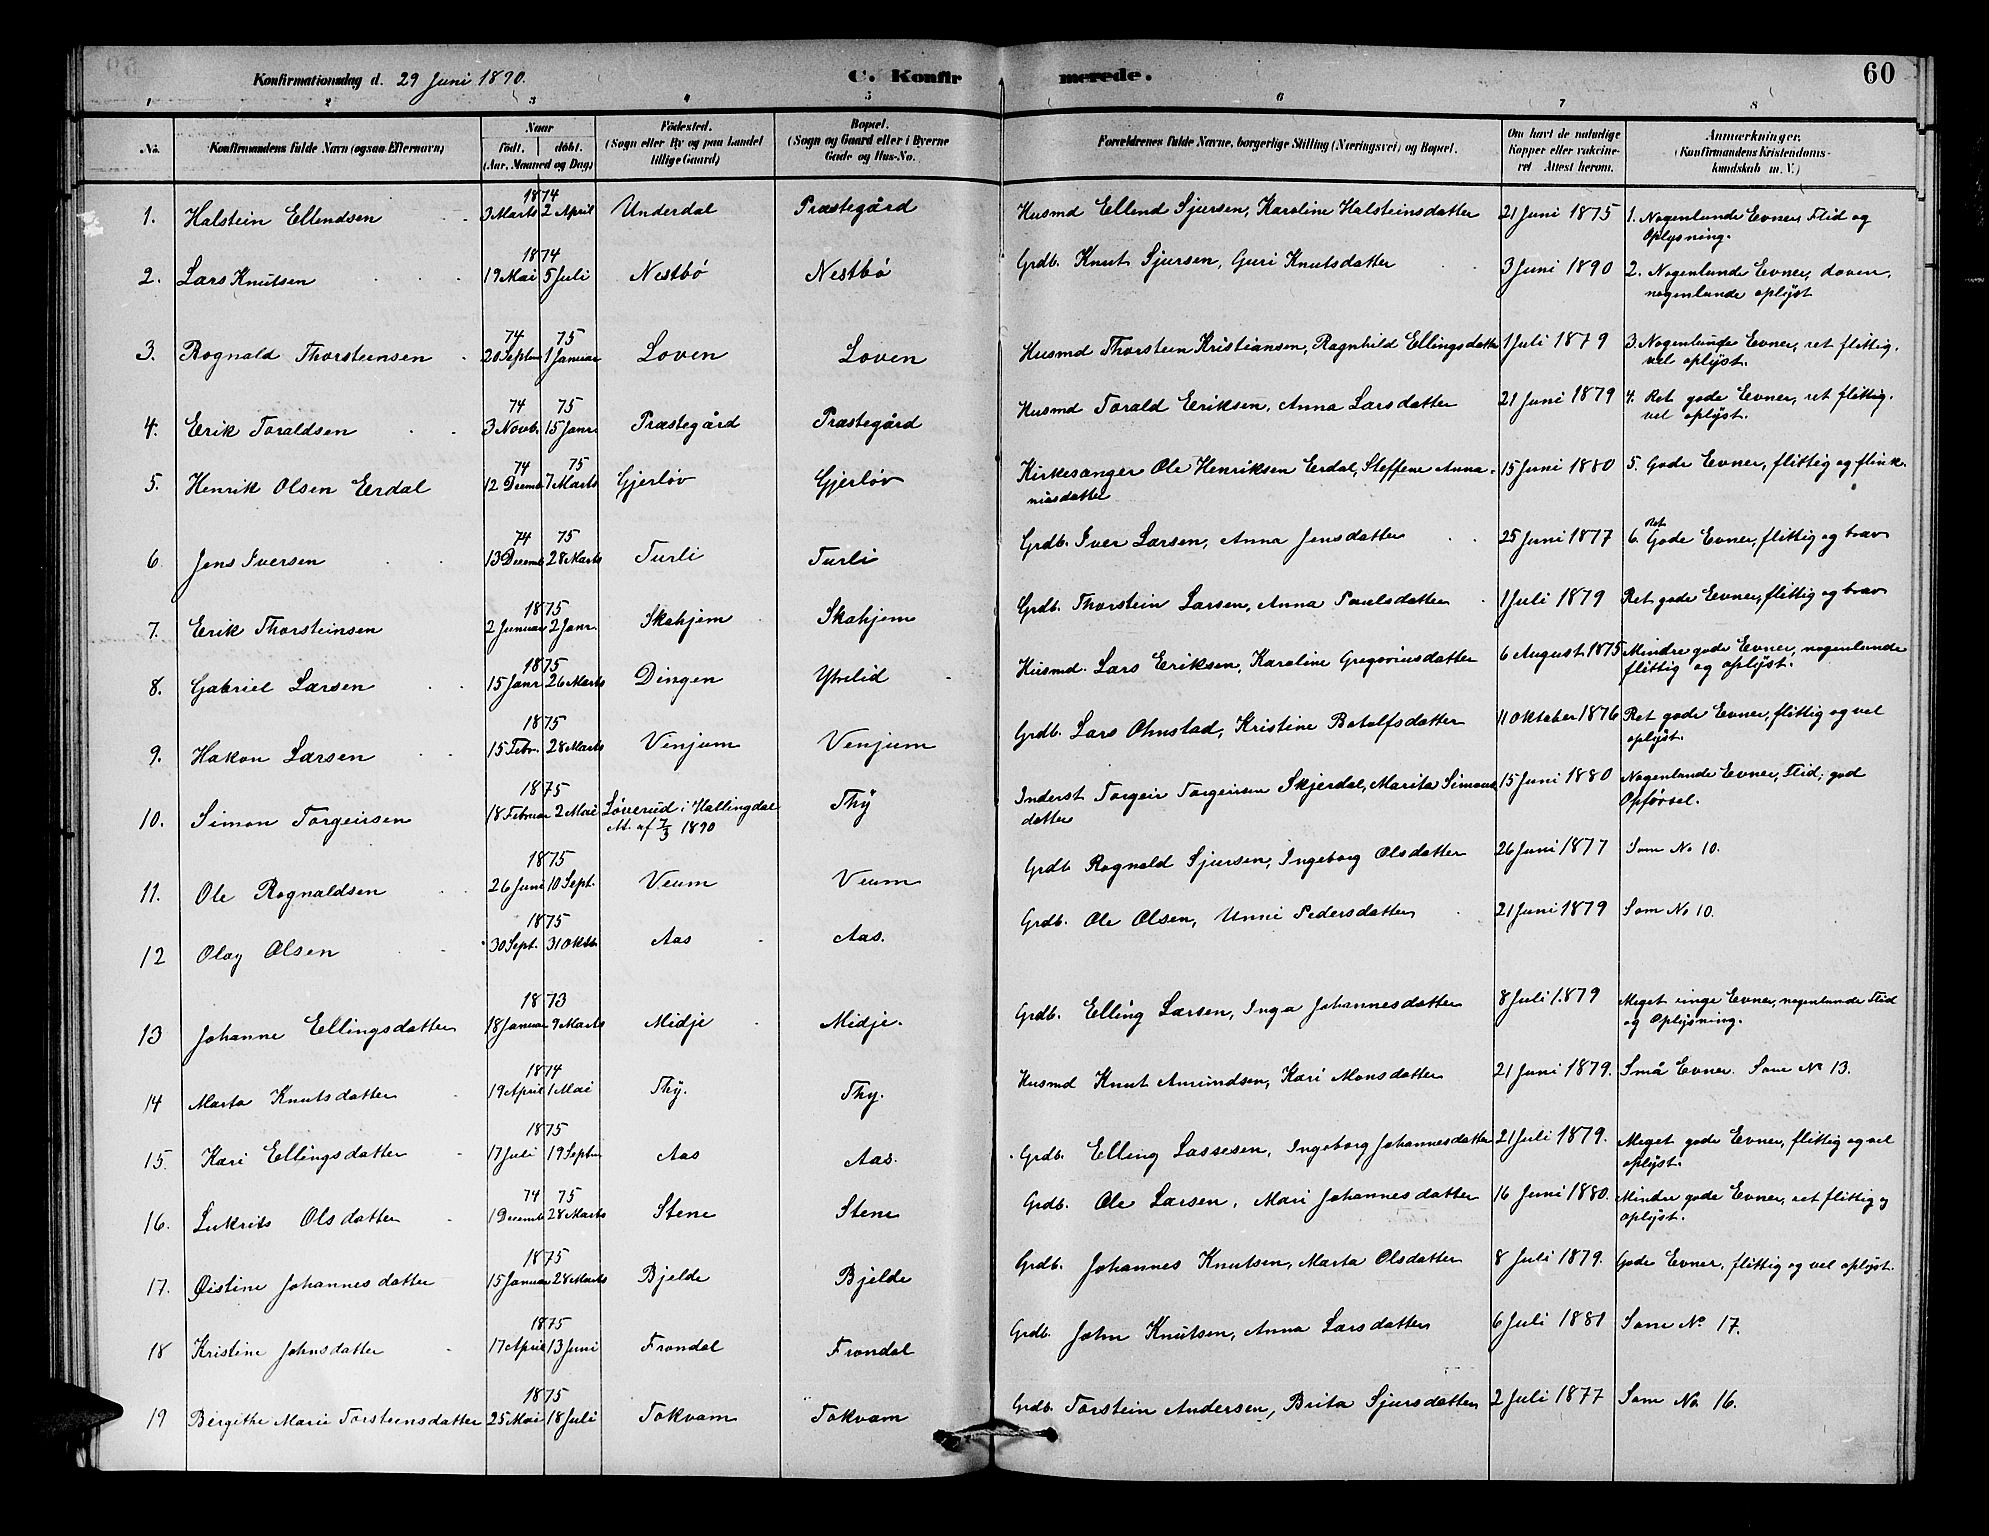 Konfirmationsdag d. 29 Juni 1890. C. Konfirmerede. 60
1 2 3 4 5 6 7 8
No. Konfirmandens fulde Navn (ogsaa Efternavn) Naar født. døbt. (Aar, Maaned og Dag) Fødested. (Sogn eller By og paa Landet tillige Gaard) Bopæl. (Sogn og Gaard eller i Byerne Gade og Hus-No. Forældrenes fulde Navne, borgerlige Stilling (Næringsvei) og Bopæl. Om havt de naturlige Kopper eller vakcineret Attest herom. Anmærkninger. (Konfirmandens Kristendomskundskab m. V.)
1874
1. Halstein Ellendsen 3 Marts 2 April Underdal Præstegård Husmd Ellend Sjursen, Karoline Halsteinsdatter 21 Juni 1875 1. Nogenlunde Evner, Flid og
Oplysning.
1874
2. Lars Knutsen 19 Mai 5 Juli Nestbø Nestbø Grdb. Knut Sjursen, Guri Knutsdatter 3 Juni 1890 2. Nogenlunde Evner, doven,
nogenlunde oplyst
74 75
3. Rognald Thorsteinsen 20 Septbr 1 Januar Loven Loven Husmd Thorstein Kristiansen, Ragnhild Ellingsdatter 1 Juli 1879 3. Nogenlunde Evner, ret flittig,
vel oplyst.
74 75
4. Erik Toraldsen 3 Novb. 15 Janr. Præstegård Præstegård Husmd Torald Eriksen, Anna Larsdatter 21 Juni 1879 4. Ret gode Evner, ret flittig,
vel oplyst.
74 75
5. Henrik Olsen Erdal 12 Decemb 7 Marts Gjerløv Gjerløv Kirkesanger Ole Henriksen Erdal, Steffene Anna- 15 Juni 1880 5. Gode Evner, flittig og flink.
niasdatter
74 75
6. Jens Iversen 13 Decemb 28 Marts Turli Turli Grdb. Iver Larsen, Anna Jensdatter 25 Juni 1877 6. Ret Gode Evner, flittig og brav
1875
7. Erik Thorsteinsen 2 Januar 2 Janr. Skahjem Skahjem Grdb. Thorstein Larsen, Anna Paulsdatter 1 Juli 1879 Ret gode Evner, flittig og brav
1875
8. Gabriel Larsen 15 Janr 26 Marts Dingen Ytrelid Husmd. Lars Eriksen, Karoline Gregoriusdatter 6 August 1875 Mindre gode Evner, nogenlunde
flittig og oplyst.
1875
9. Hakon Larsen 15 Febr. 28 Marts Venjum Venjum Grdb. Lars Ohnstad, Kristine Botolfsdatter 11 Oktober 1876 Ret gode Evner, flittig og vel
oplyst.
1875
10. Simon Torgeirsen 18 Februar 2 Mai Løverud i Hallingdal Thy Inderst Torgeir Torgeirsen Skjerdal, Marita Simons 15 Juni 1880 Nogenlunde Evner, Flid, god
M. af 7/3 1890 datter Opførsel.
1875
11. Ole Rognaldsen 26 Juni 10 Sept. Veum Veum Grdb Rognald Sjursen, Ingeborg Olsdatter 26 Juni 1877 Som No 10.
1875
12 Olay Olsen 30 Sept. 31 Oktb. Aas Aas. Grdb. Ole Olsen, Unni Pedersdatter 21 Juni 1879 Som No 10.
1873
13 Johanne Ellingsdatter 18 Januar 9 Marts Midje Midje. Grdb. Elling Larsen, Inga Johannesdatter 8 Juli 1879 Meget ringe Evner, nogenlunde Flid
og Oplysning.
1874
14 Marta Knutsdatter 19 April 1 Mai Thy. Thy. Husmd Knut Amundsen, Kari Monsdatter 21 Juni 1879. Små Evner. Som No 13.
1875
15. Kari Ellingsdatter 17 Juli 19 Septbr Aas Aas. Grdb. Elling Lassesen, Ingeborg Johannesdatter 21 Juli 1879. Meget gode Evner, flittig og vel
oplyst.
74 75
16. Lukrits Olsdatter 19 Decemb 28 Marts Stene Stene Grdb. Ole Larsen, Mari Johannesdatter 16 Juni 1880. Mindre gode Evner, ret flittig og
oplyst.
1875
17. Øistine Johannesdatter 15 Januar 28 Marts Bjelde Bjelde Grdb. Johannes Knutsen, Marta Olsdatter 8 Juli 1879. Gode Evner, flittig og vel oplyst.
1875
18 Kristine Johnsdatter 17 April 13 Juni Frondal Frondal Grdb. John Knutsen, Anna Larsdatter 6 Juli 1881 Som No 17.
1875
19 Birgithe Marie Torsteinsdatter 25 Mai 18 Juli Tokvam Tokvam Grdb. Torstein Andersen, Brita Sjursdatter 2 Juli 1877 Som No. 16.